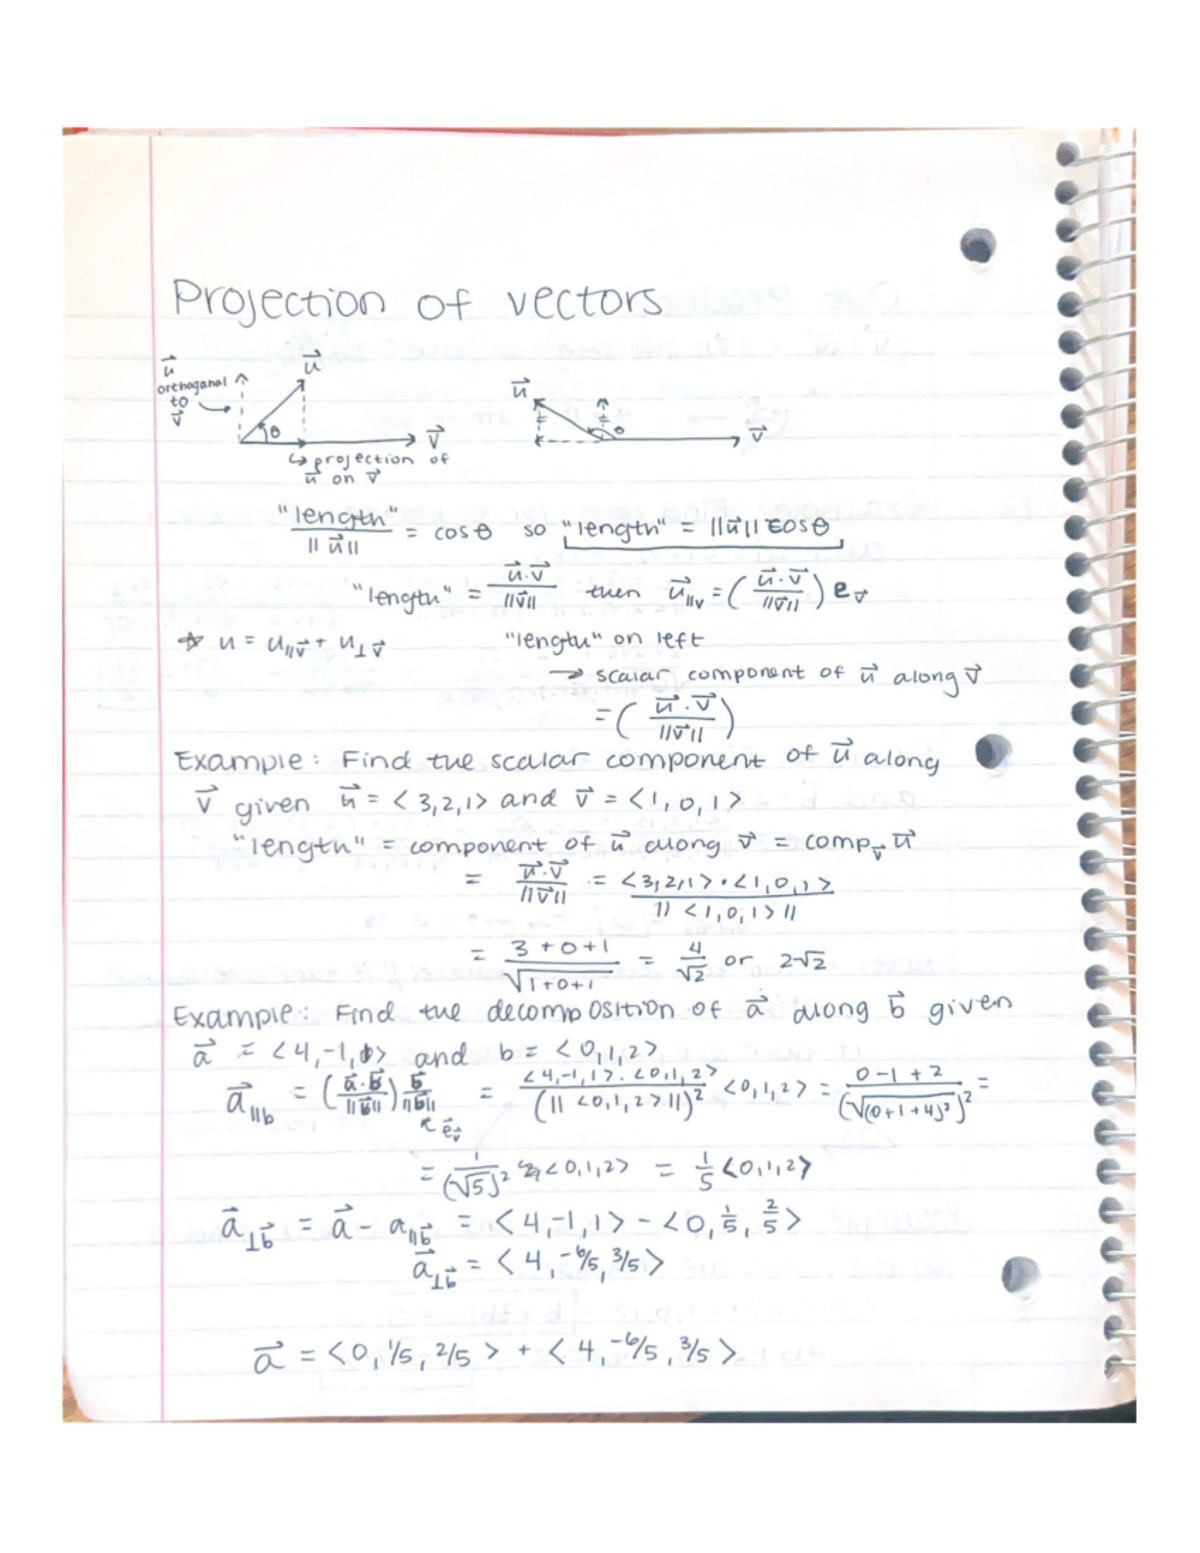 Projection of vectors
u⃗ orthoganal to v⃗
u⃗
θ
v⃗
↳ projection of u⃗ on v⃗
u⃗
θ
v⃗
"length" / ||u⃗|| = cosθ so "length" = ||u⃗|| cosθ
"length" = u⃗·v⃗ / ||v⃗|| then u⃗_||v = (u⃗·v⃗ / ||v⃗||) e_v⃗
☆ u = u_||v⃗ + u_⊥v⃗ "length" on left
→ scalar component of u⃗ along v⃗
= (u⃗·v⃗ / ||v⃗||)
Example: Find the scalar component of u⃗ along
v⃗ given u⃗ = <3,2,1> and v⃗ = <1,0,1>
"length" = component of u⃗ along v⃗ = comp_v⃗ u⃗
= u⃗·v⃗ / ||v⃗|| = <3,2,1>·<1,0,1> / ||<1,0,1>||
= 3+0+1 / √1+0+1 = 4/√2 or 2√2
Example: Find the decomposition of a⃗ along b⃗ given
a⃗ = <4,-1,1> and b = <0,1,2>
a⃗_||b = (a⃗·b⃗ / ||b⃗||) b⃗/||b⃗|| = <4,-1,1>·<0,1,2> / (||<0,1,2>||)² <0,1,2> = 0-1+2 / (√(0+1+4)²)² =
↖ e⃗_v⃗
= 1/(√5)² <0,1,2> = 1/5 <0,1,2>
a⃗_⊥b⃗ = a⃗ - a_||b⃗ = <4,-1,1> - <0, 1/5, 2/5>
a⃗_⊥b⃗ = <4, -6/5, 3/5>
a⃗ = <0, 1/5, 2/5> + <4, -6/5, 3/5>